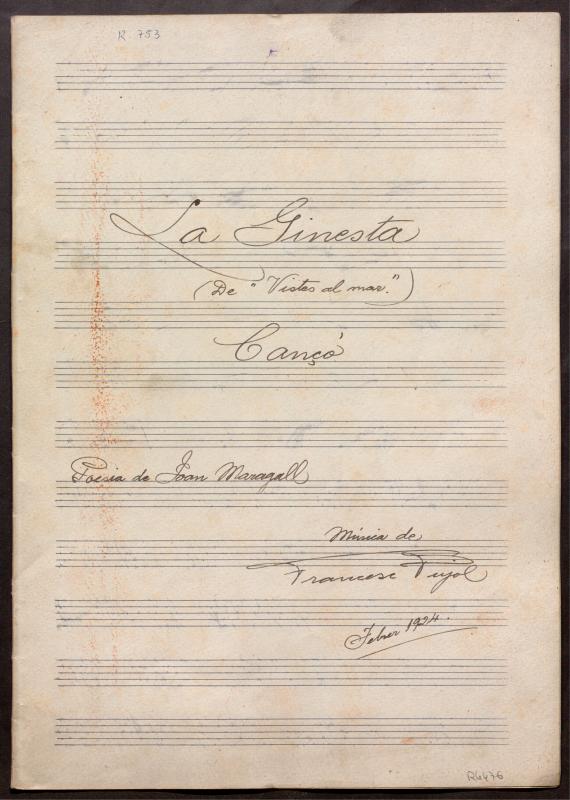 R. 753
La Ginesta
(De "Vistes al mar.")
Cançó
Poesia de Joan Maragall
Música de
Francesc Pujol
Febrer 1924.
R6476